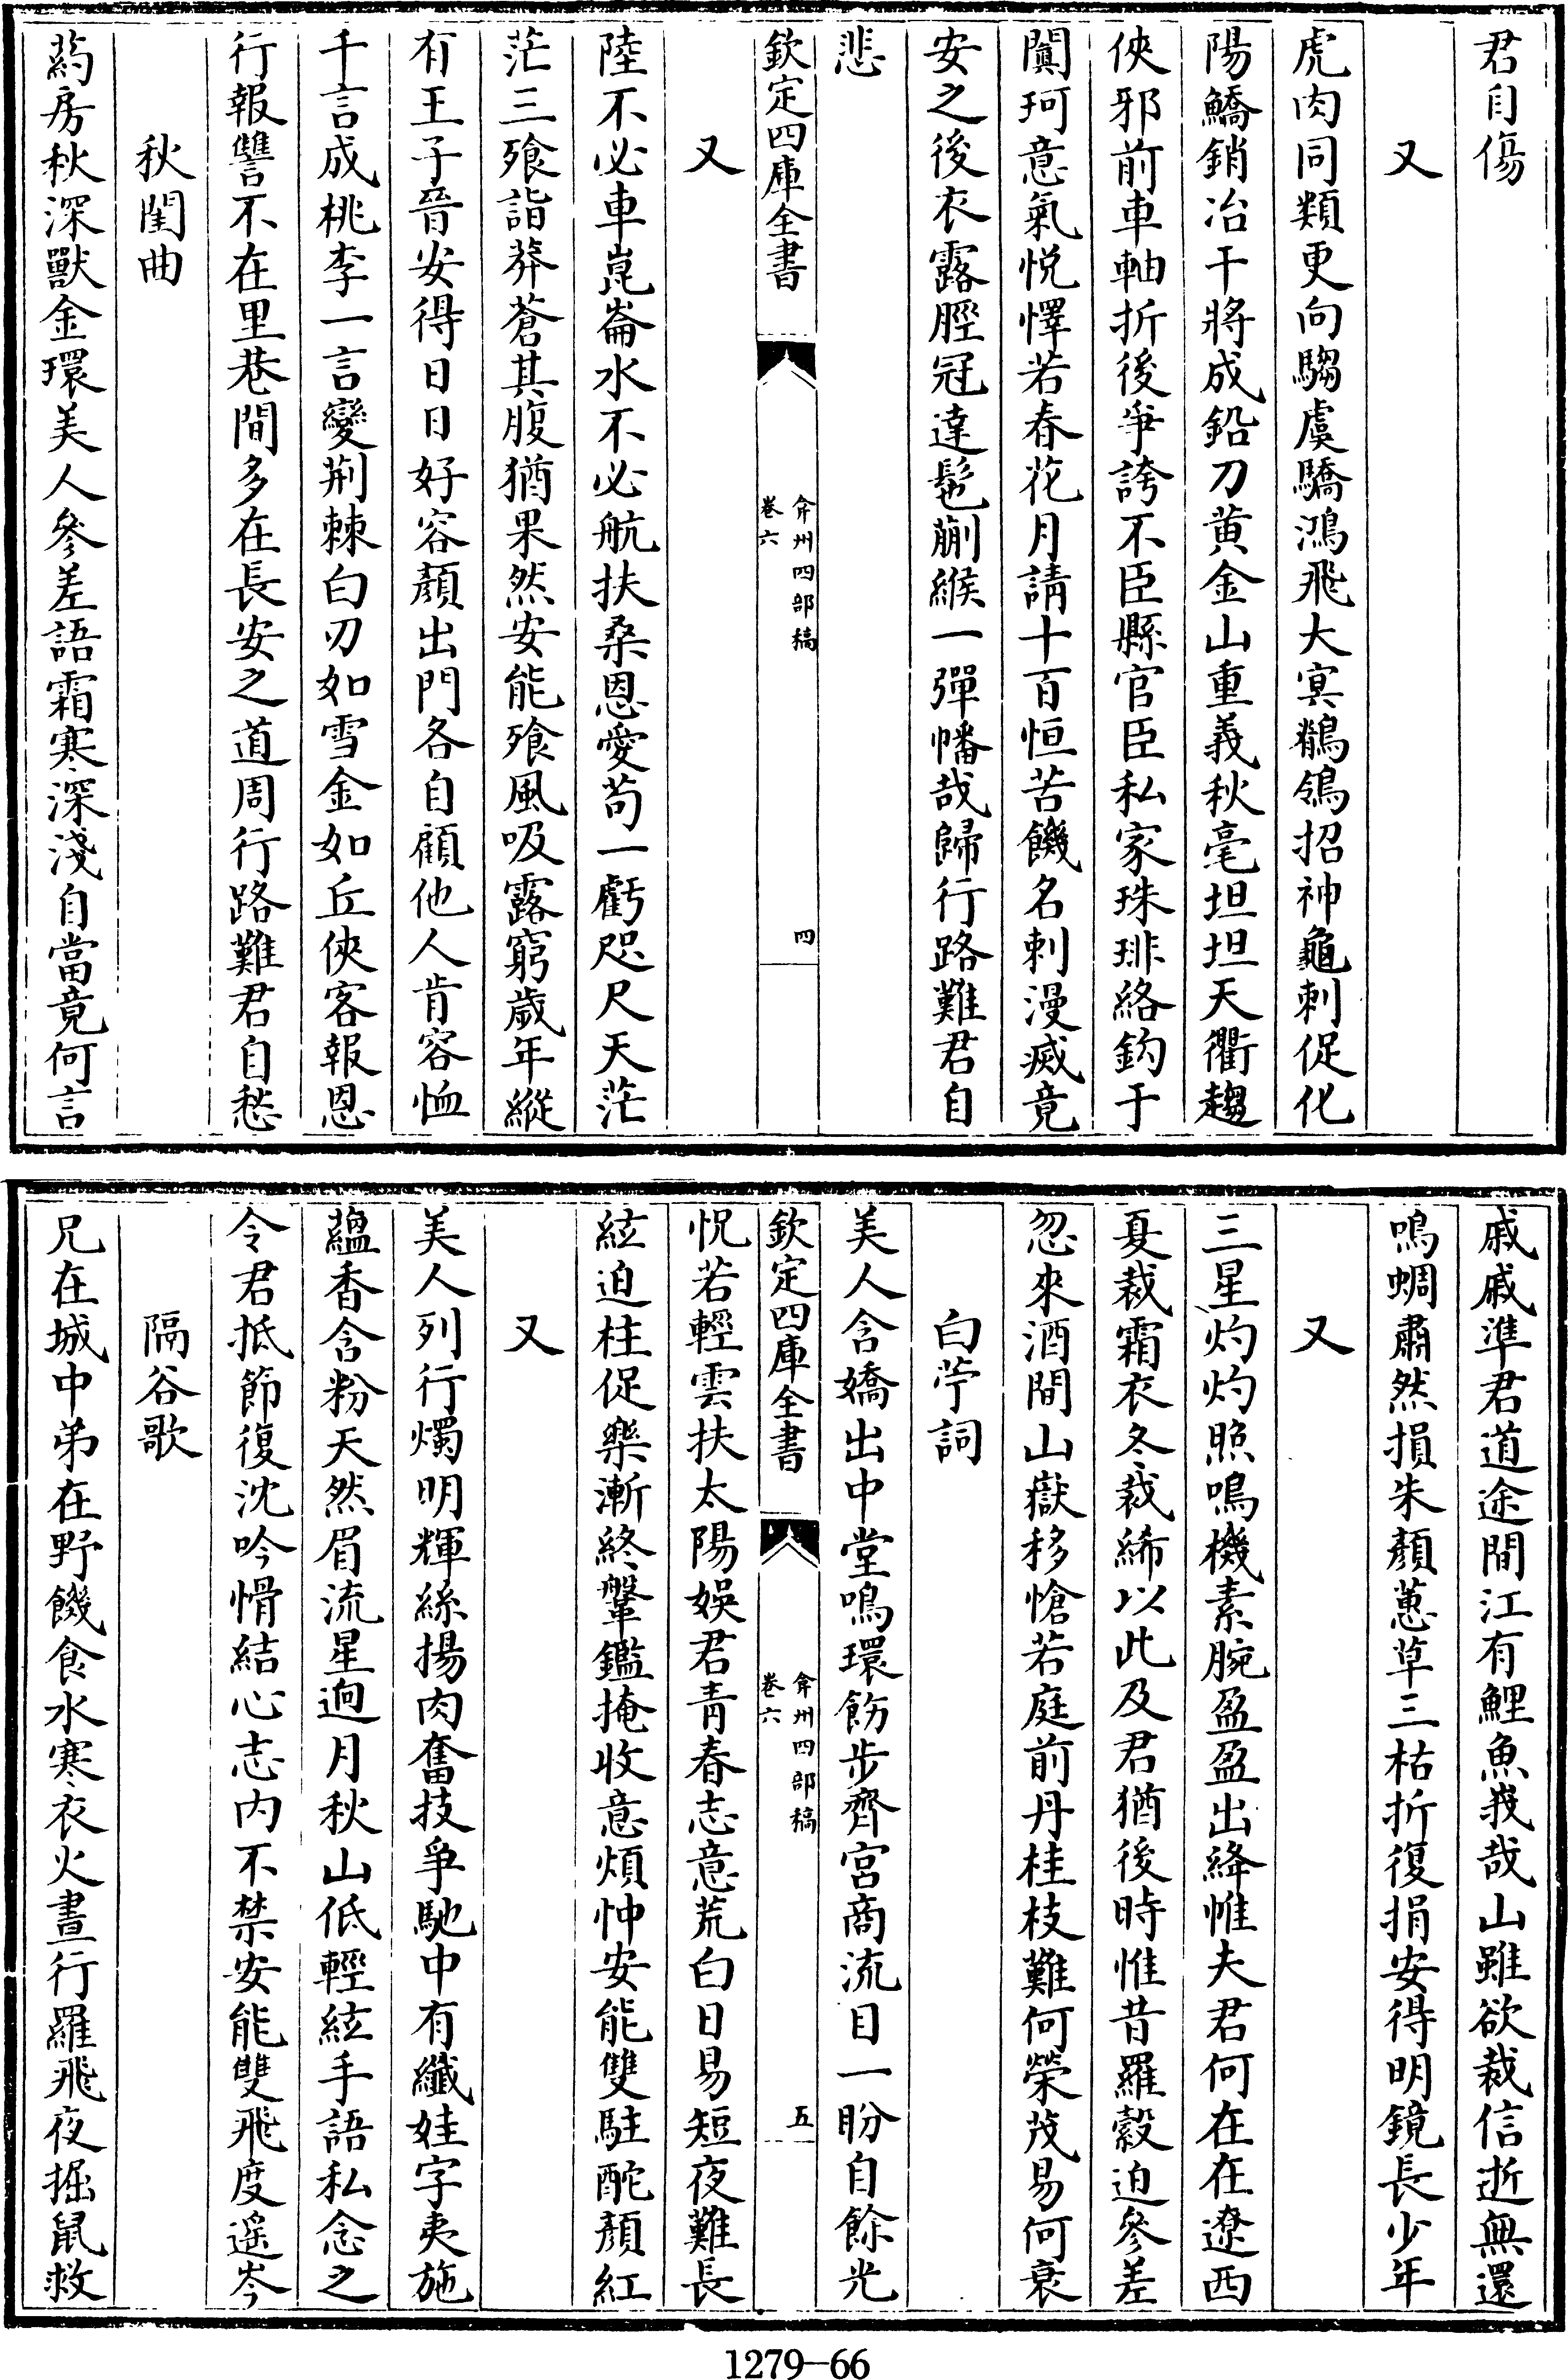 君自傷
又
虎肉同類更向騶虞驕鴻飛大㝠鶺鴒招神龜刺促化
陽鱎銷冶干將成鉛刀黄金山重義秋毫坦坦天衢趨
俠邪前車軸折後爭誇不臣縣官臣私家珠琲絡鈎于
闐珂意氣悦懌若春花月請十百恒苦饑名刺漫㓕竟
安之後衣露脛冠達髢蒯緱一彈幡哉歸行路難君自
悲
欽定四庫全書
弇州四部稿
卷六
四
又
陸不必車崑崙水不必航扶桑恩愛苟一虧咫尺天茫
茫三飱詣莽蒼其腹猶果然安能飱風吸露窮歲年縱
有王子晉安得日日好容顏出門各自顧他人肯容恤
千言成桃李一言變荆棘白刃如雪金如丘俠客報恩
行報讐不在里巷間多在長安之道周行路難君自愁
秋閨曲
葯房秋深獸金環美人參差語霜寒深淺自當竟何言
戚戚準君道途間江有鯉魚峩哉山雖欲裁信逝無還
鳴蜩肅然損朱顏蕙草三枯折復捐安得明鏡長少年
又
三星灼灼照鳴機素腕盈盈出絳帷夫君何在在遼西
夏裁霜衣冬裁絺以此及君猶後時惟昔羅縠迫參差
忽來酒間山嶽移愴若庭前丹桂枝難何榮茂易何衰
白苧詞
美人含嬌出中堂鳴環飭步齊宫商流目一盼自餘光
欽定四庫全書
弇州四部稿
卷六
五
怳若輕雲扶太陽娛君青春志意荒白日易短夜難長
絃迫柱促樂漸終鞶鑑掩收意煩忡安能雙駐酡顏紅
又
美人列行燭明輝絲揚肉奮技爭馳中有纖娃字夷施
藴香含粉天然眉流星逈月秋山低輕絃手語私念之
令君抵節復沈吟愲結心志内不禁安能雙飛度遥岑
隔谷歌
兄在城中弟在野饑食水寒衣火晝行羅飛夜掘鼠救
1279-66